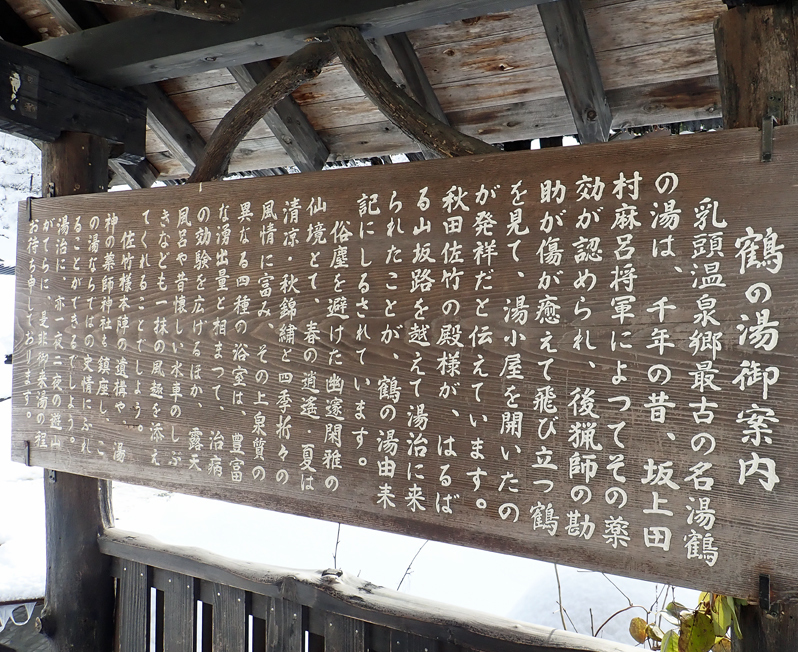 鶴の湯御案内
乳頭温泉郷最古の名湯鶴
の湯は、千年の昔、坂上田
村麻呂将軍によつてその薬
効が認められ、後猟師の勘
助が傷が癒えて飛び立つ鶴
を見て、湯小屋を開いたの
が発祥だと伝えています。
秋田佐竹の殿様が、はるば
る山坂路を越えて湯治に来
られたことが、鶴の湯由来
記にしるされています。
俗塵を避けた幽邃閑雅の
仙境とて、春の逍遥・夏は
清凉・秋錦繍と四季折々の
風情に富み、その上泉質の
異なる四種の浴室は、豊富
な湧出量と相まつて、治病
の効験を広げるほか、露天
風呂や昔懐しい水車のしぶ
きなども一抹の風趣を添え
てくれることでしよう。
佐竹様本陣の遺構や、湯
神の薬師神社も鎮座し、こ
の湯ならではの実情にふれ
ることができるでしよう。
湯治に、亦一夜二夜の遊山
がてらに、是非御来湯の程
お待ち申しております。